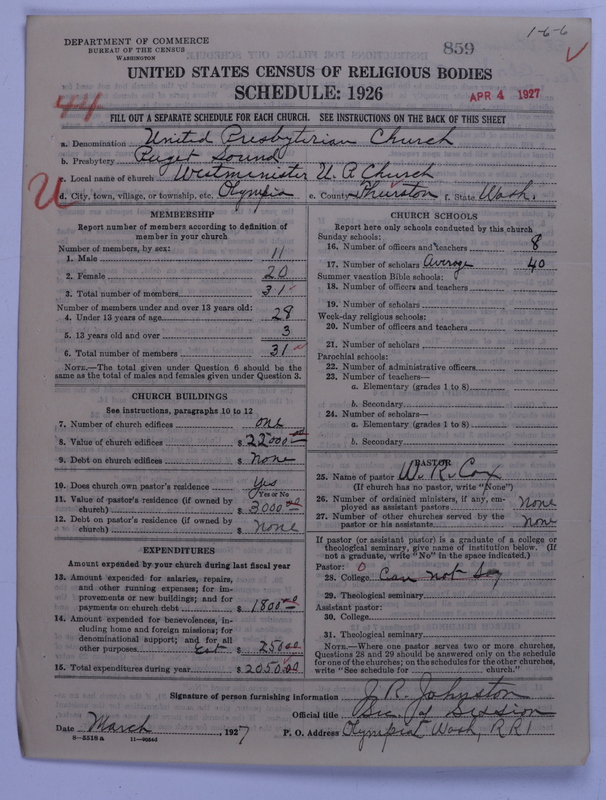 1-6-6
DEPARTMENT OF COMMERCE
BUREAU OF THE CENSUS
WASHINGTON
859
UNITED STATES CENSUS OF RELIGIOUS BODIES
SCHEDULE: 1926
APR 4 1927
44
FILL OUT A SEPARATE SCHEDULE FOR EACH CHURCH. SEE INSTRUCTIONS ON THE BACK OF THIS SHEET
a. Denomination United Presbyterian Church
b. Presbytery Puget Sound
c. Local name of church Westminister U. P. Church
U
d. City, town, village, or township, etc. Olympia e. County Thurston f. State Wash.
MEMBERSHIP
Report number of members according to definition of member in your church
Number of members, by sex:
1. Male 11
2. Female 20
3. Total number of members 31
Number of members under and over 13 years old:
4. Under 13 years of age 28
5. 13 years old and over 3
6. Total number of members 31
NOTE.—The total given under Question 6 should be
same as the total of males and females given under Question 3.
CHURCH BUILDINGS
See instructions, paragraphs 10 to 12
7. Number of church edifices one
8. Value of church edifices $ 22000 00
9. Debt on church edifices $ None
10. Does church own pastor's residence Yes
Yes or No
11. Value of pastor's residence (if owned by
church) $ 3000 00
12. Debt on pastor's residence (if owned by
church) $ None
EXPENDITURES
Amount expended by church during last fiscal year
13. Amount expended for salaries, repairs,
and other running expenses; for im-
provements or new buildings; and for
payments on church debt $ 1800 00
14. Amount expended for benevolences, in-
cluding home and foreign missions; for
denominational support; and for all
other purposes Est $ 250 00
15. Total expenditures during year $ 2050.00
CHURCH SCHOOLS
Report here only schools conducted by this church
Sunday schools:
16. Number of officers and teachers 8
17. Number of scholars Average 40
Summer vacation Bible schools:
18. Number of officers and teachers
19. Number of scholars
Week-day religious schools:
20. Number of officers and teachers
21. Number of scholars
Parochial schools:
22. Number of administrative officers
23. Number of teachers—
a. Elementary (grades 1 to 8)
b. Secondary
24. Number of scholars—
a. Elementary (grades 1 to 8)
b. Secondary
PASTOR
25. Name of pastor W. R. Cox
(If church has no pastor, write "None")
26. Number of ordained ministers, if any, em-
ployed as assistant pastors None
27. Number of other churches served by the
pastor or his assistants None
If pastor (or assistant pastor) is a graduate of a college or
theological seminary, give name of institution below. (If
not a graduate, write "No" in the space indicated.)
Pastor: 0
28. College Can not say
29. Theological seminary
Assistant pastor:
30. College
31. Theological seminary
NOTE.—Where one pastor serves two or more churches,
Questions 28 and 29 should be answered only on the schedule
for one of the churches; on the schedules for the other churches,
write "See schedule for church."
Signature of person furnishing information J. R. Johnston
Official title Sec. of Session
Date March, 1927 P. O. Address Olympia Wash, RR1
8—5518a